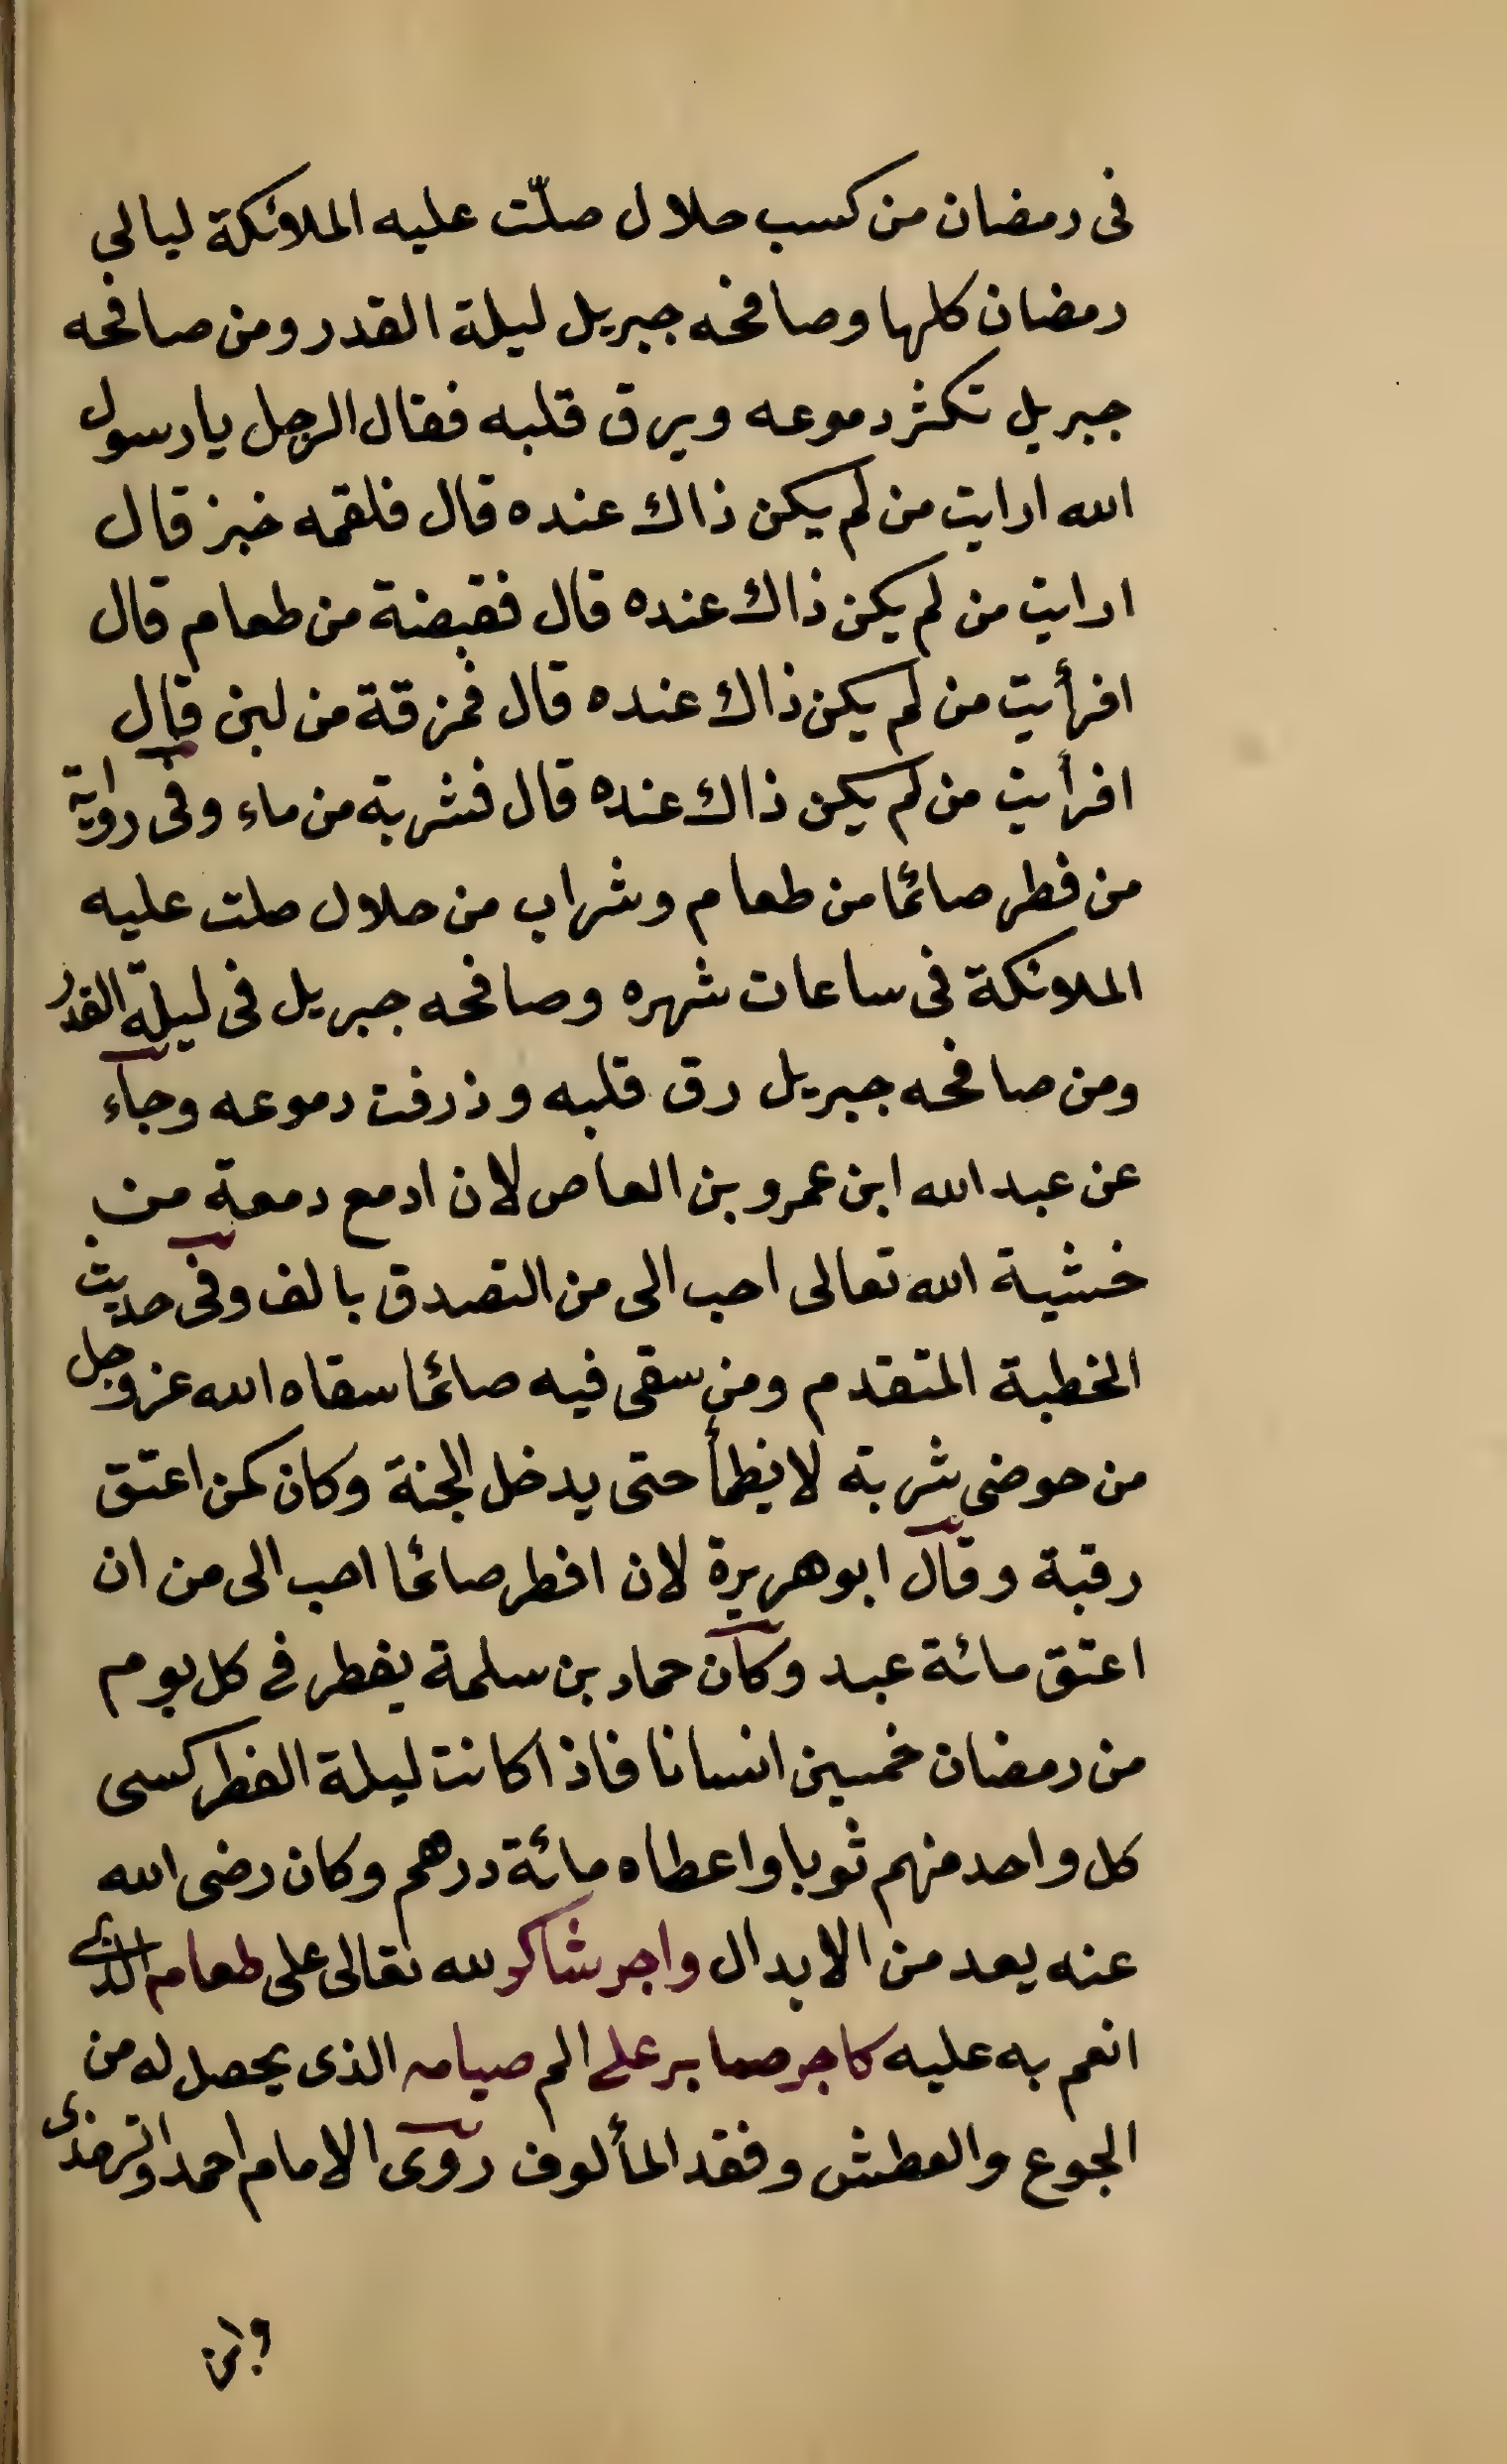 فى رمضان من كسب حلال صلّت عليه الملائكة ليالي
رمضان كلها وصافحه جبريل ليلة القدر ومن صافحه
جبريل تكثر دموعه ويرق قلبه فقال الرجل يا رسول
الله ارايت من لم يكن ذاك عنده قال فلقمه خبز قال
ارايت من لم يكن ذاك عنده قال فقبضة من طعام قال
افرأيت من لم يكن ذاك عنده قال فمزقة من لبن قال
افرأيت من لم يكن ذاك عنده قال فشربة من ماء وفى رواية
من فطر صائما من طعام وشراب من حلال صلت عليه
الملائكة فى ساعات شهره وصافحه جبريل فى ليلة القدر
ومن صافحه جبريل رق قلبه وذرفت دموعه وجاء
عن عبد الله ابن عمرو بن العاص لان ادمع دمعة من
خشية الله تعالى احب الى من التصدق بالف وفى حديث
الخطبة المتقدم ومن سقى فيه صائما سقاه الله عز وجل
من حوضى شربة لا يظمأ حتى يدخل الجنة وكان كمن اعتق
رقبة وقال ابو هريرة لان افطر صائما احب الى من ان
اعتق مائة عبد وكان حماد بن سلمة يفطر فى كل يوم
من رمضان خمسين انسانا فاذا كانت ليلة الفطر كسى
كل واحد منهم ثوبا واعطاه مائة درهم وكان رضى الله
عنه يعد من الابدال واجر شاكر لله تعالى على طعام الذى
انعم به عليه كاجر صابر على الم صيامه الذى يحصل له من
الجوع والعطش وفقد المألوف روى الامام احمد والترمذى
وابن